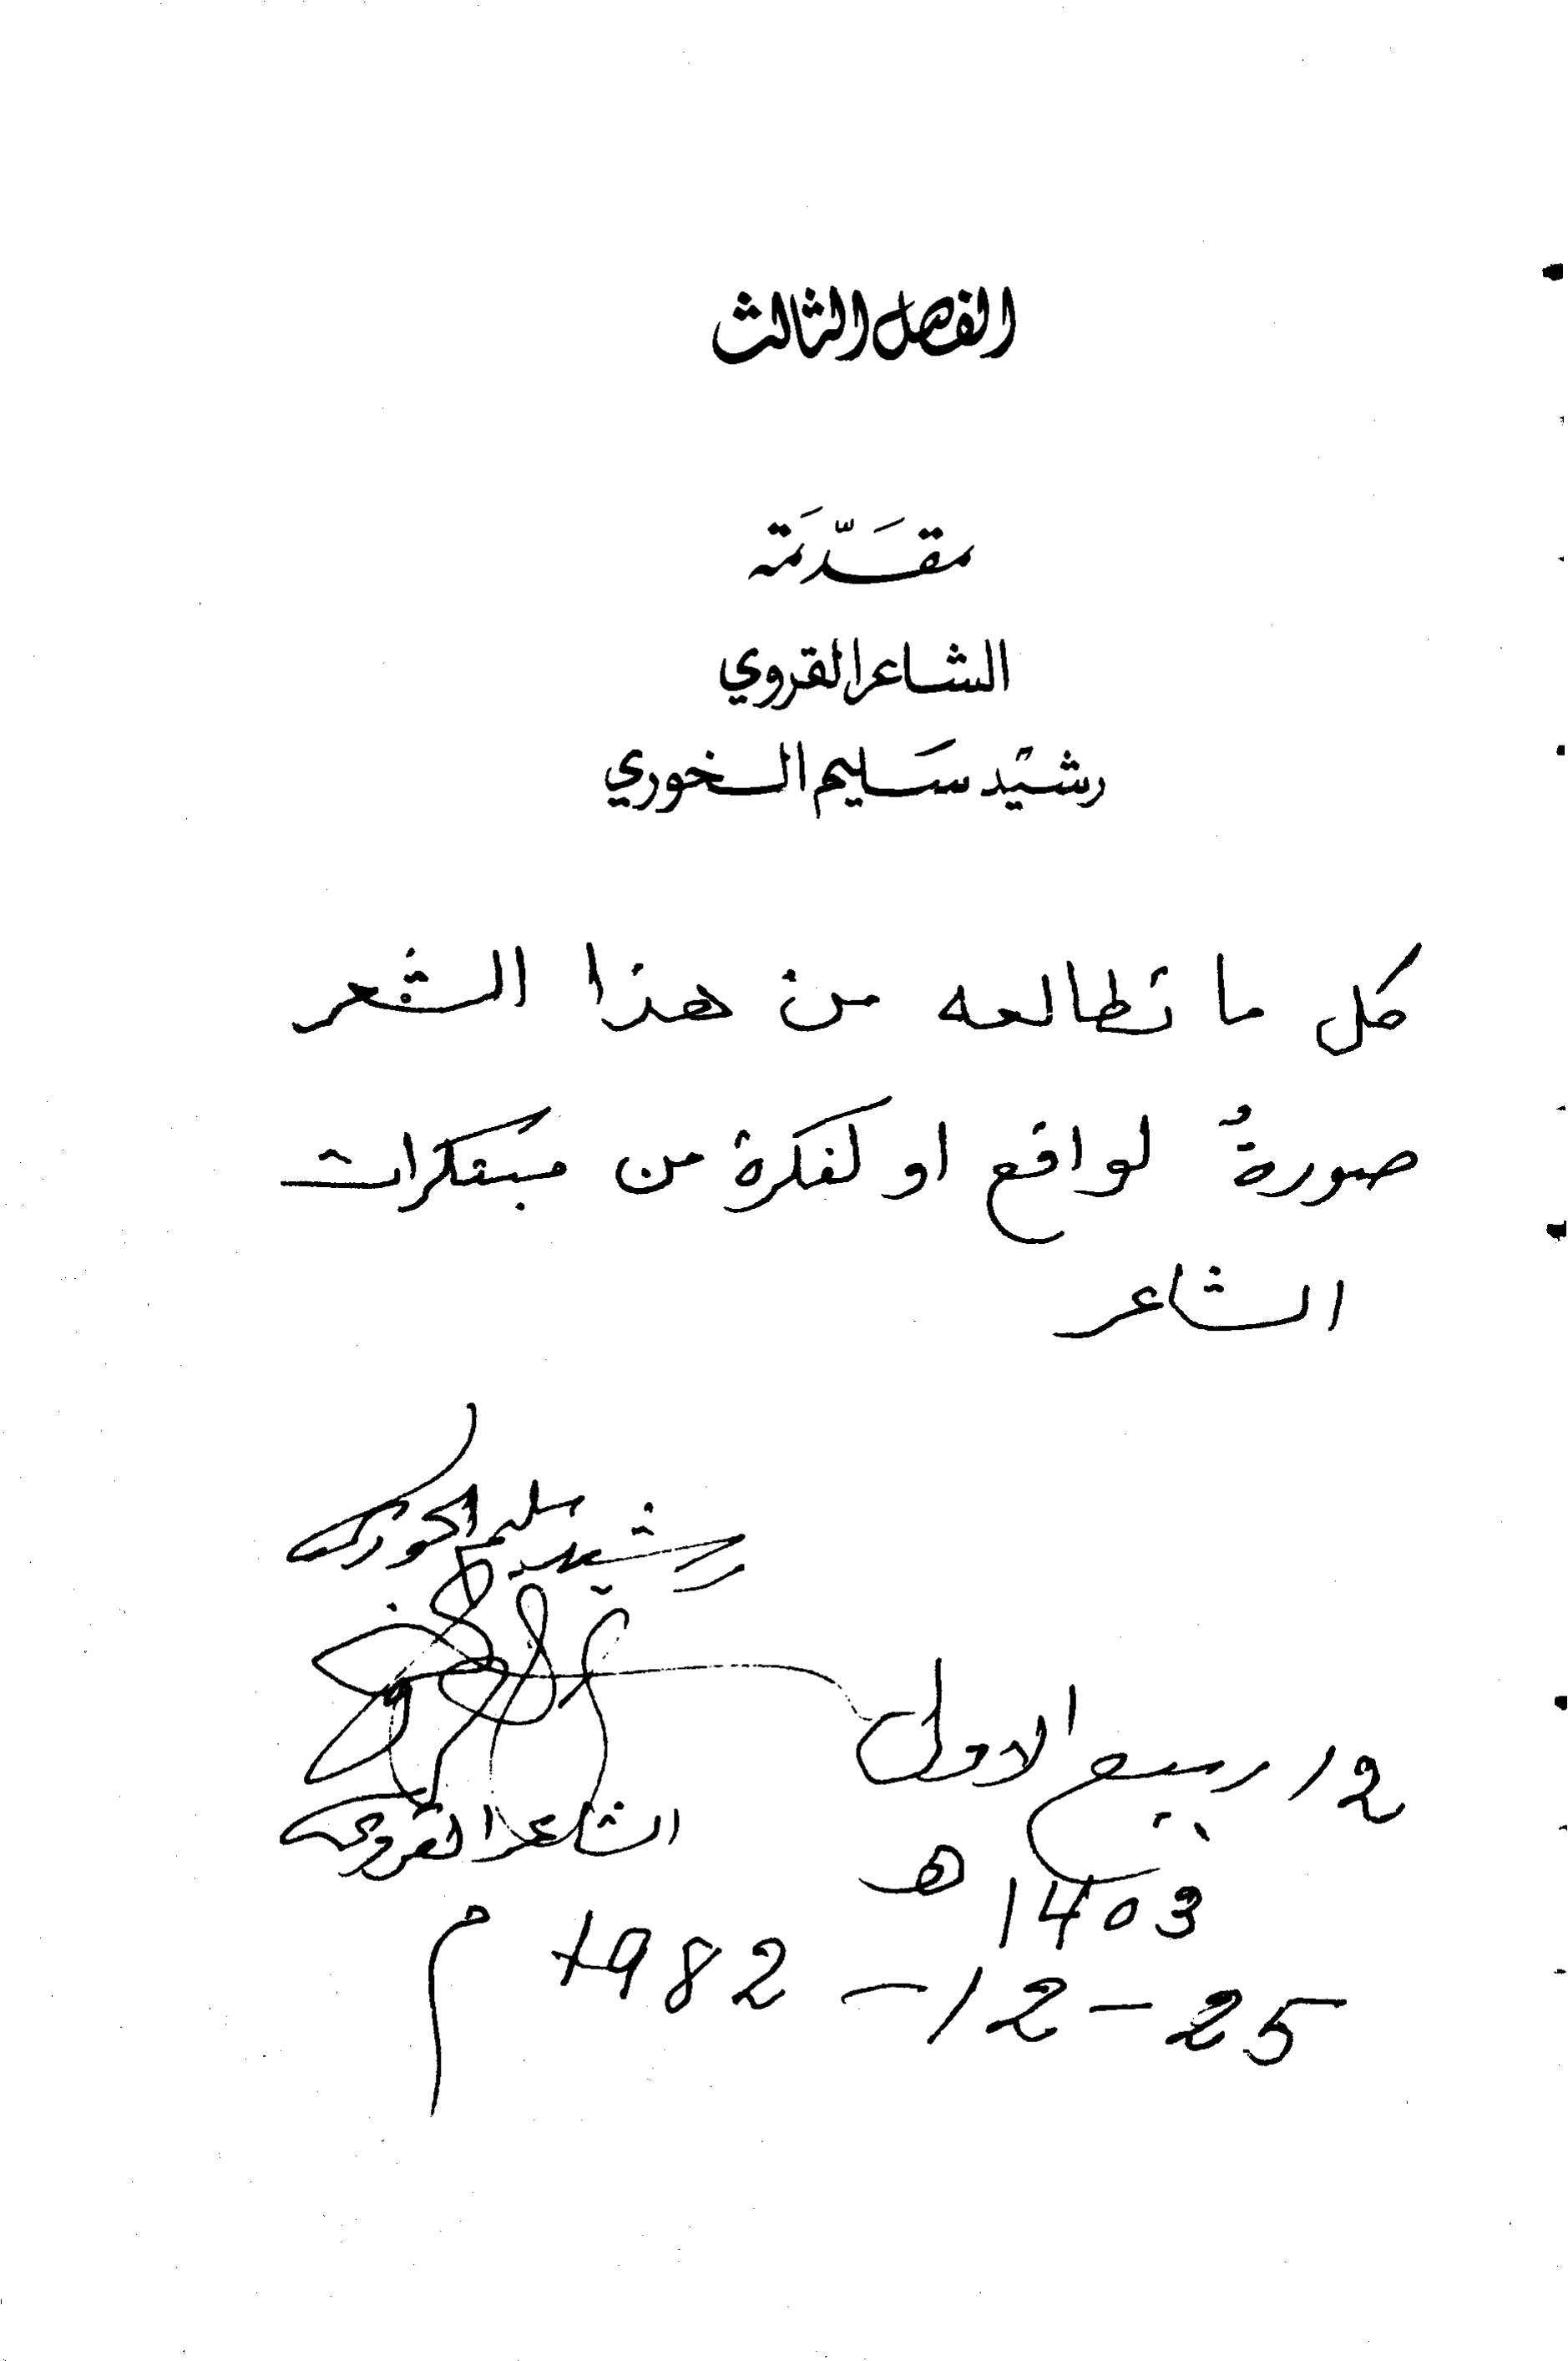 الفصل الثالث
مقَدّمَة
الشاعر القروي
رشيد سَليم الخوري
كل ما تطالعه من هذا الشعر
صورةٌ لواقع او لفكرة من مبتكرات
الشاعر
رشيد سليم الخوري
12 ربيع الاول
الشاعر القروي
1403 هـ
25-12-1982 م